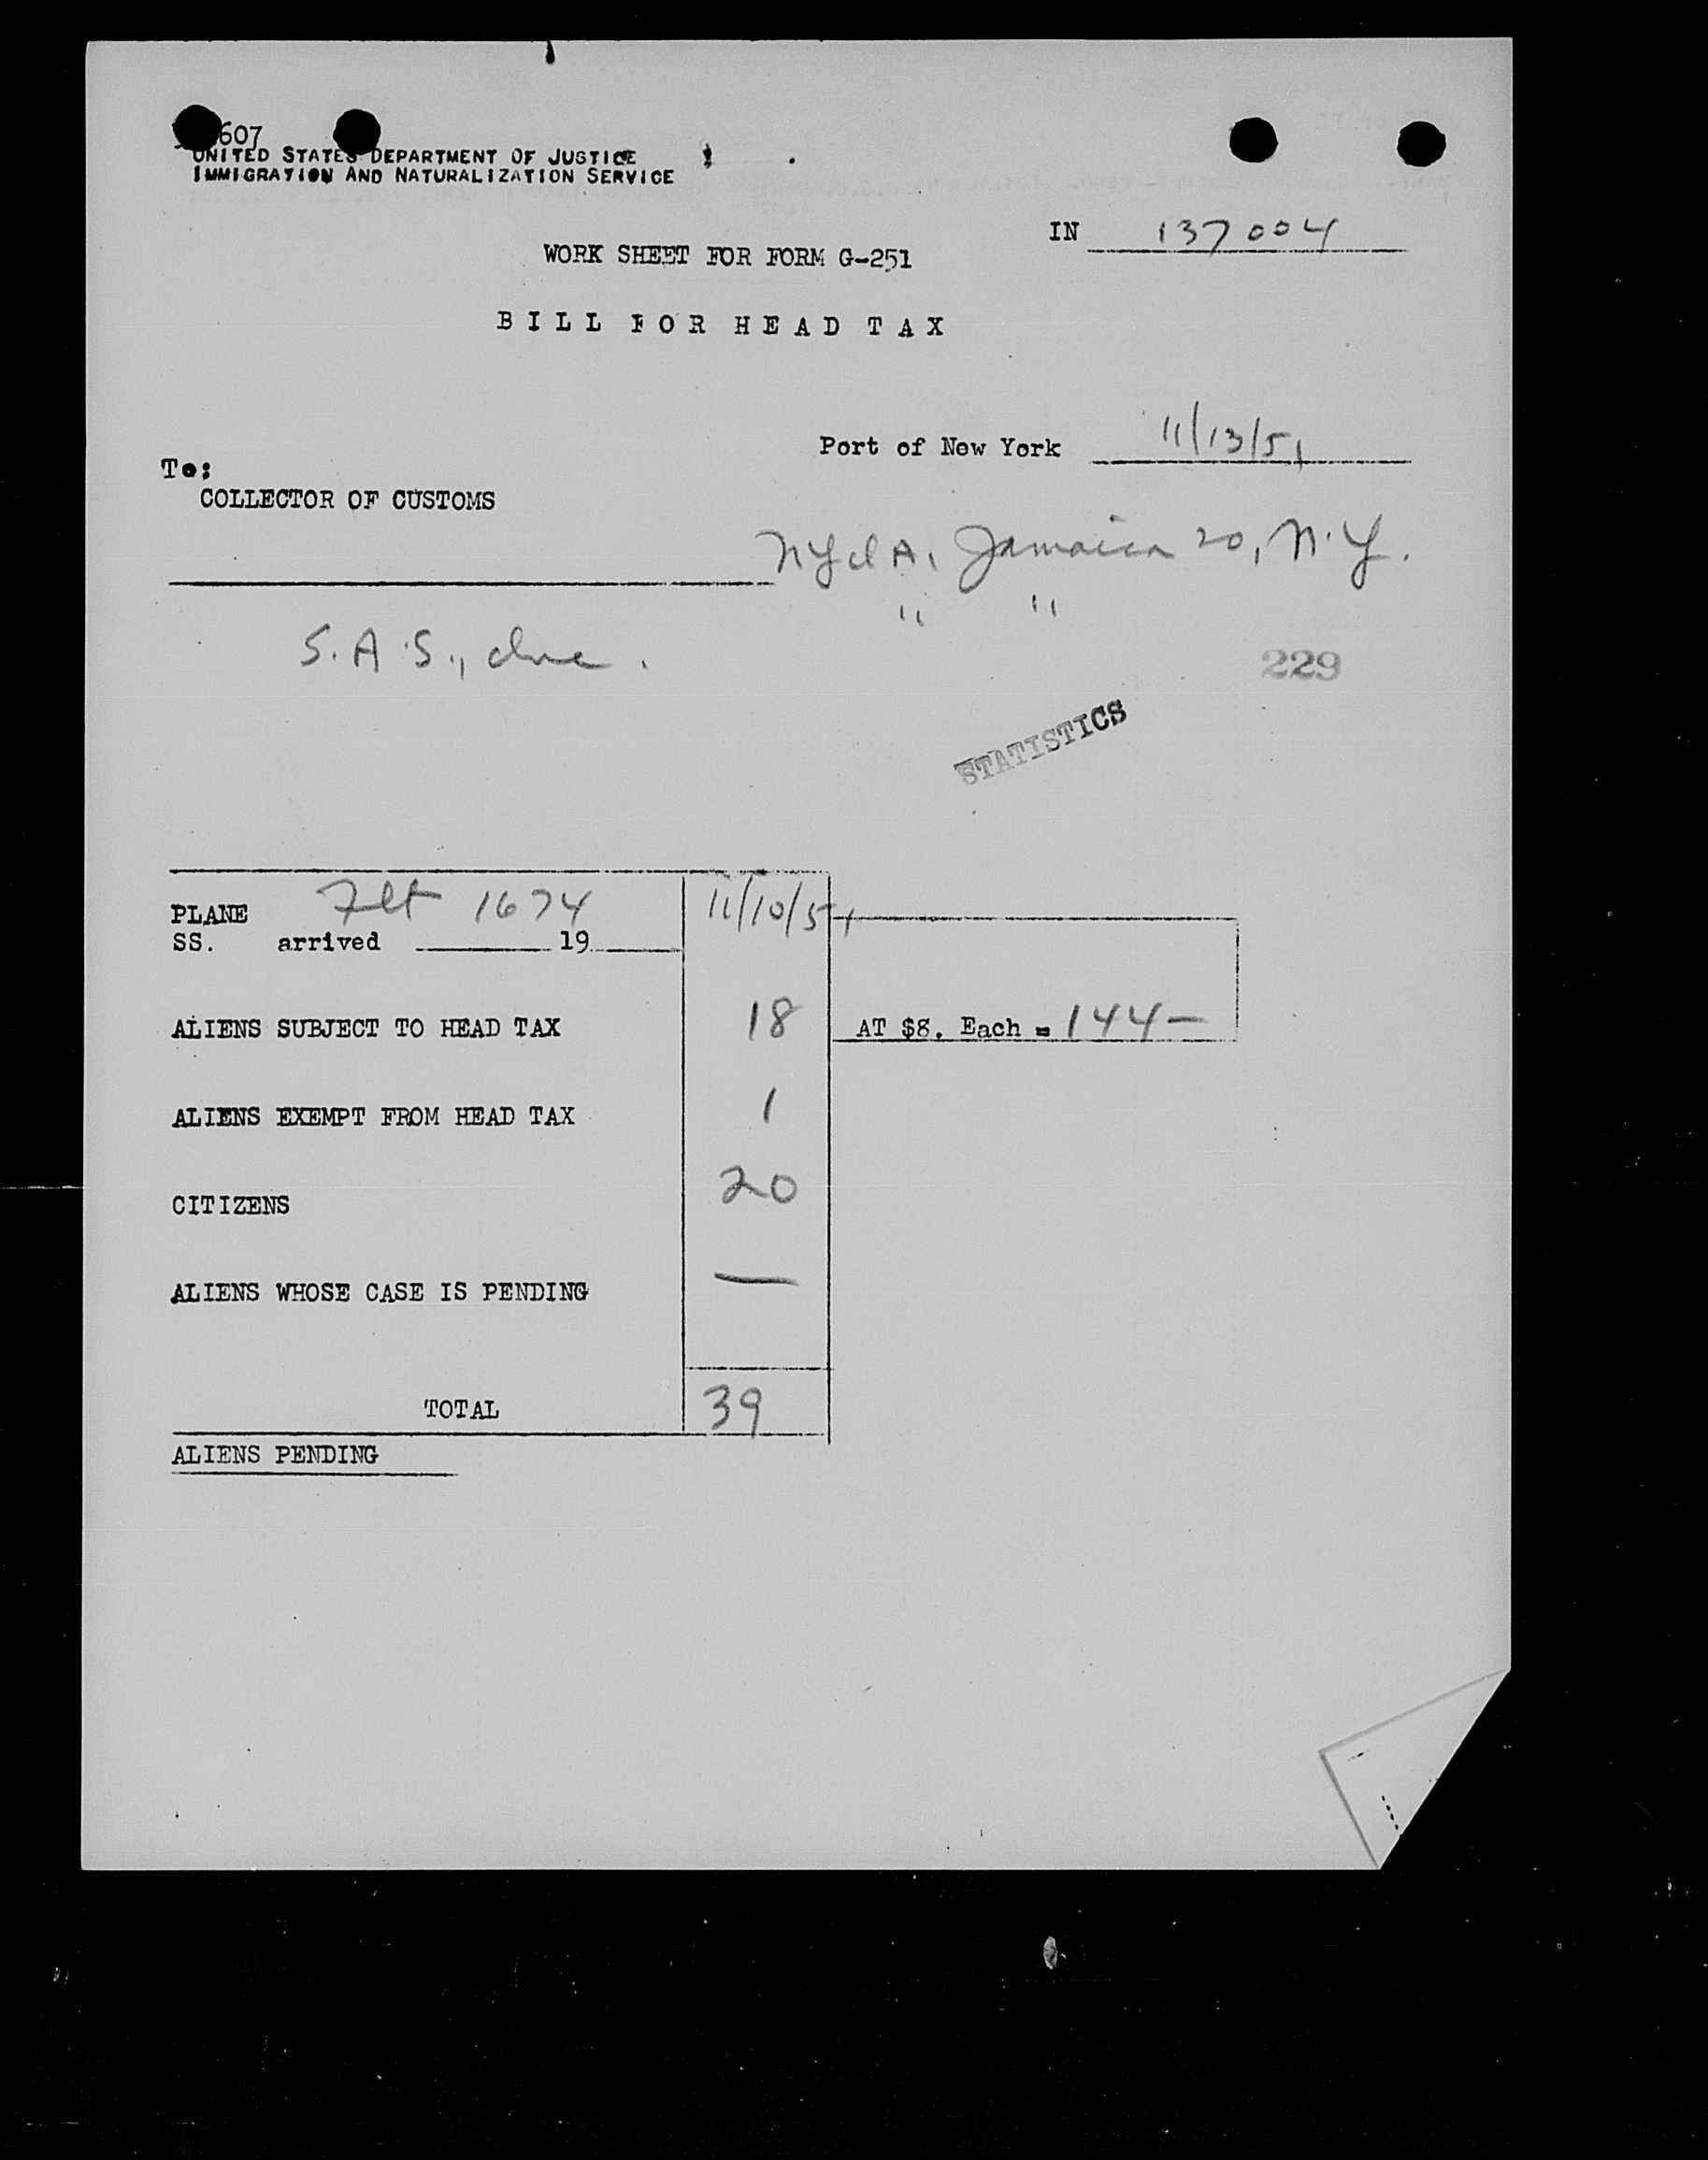 607
UNITED STATES DEPARTMENT OF JUSTICE
IMMIGRATION AND NATURALIZATION SERVICE
IN 137004
WORK SHEET FOR FORM G-251
BILL FOR HEAD TAX
Port of New York 11/13/51
To:
COLLECTOR OF CUSTOMS
NYIA, Jamaica 20, N.Y.
" "
S.A.S., Inc.
229
STATISTICS
PLANE Flt 1674 11/10/51
SS. arrived 19
ALIENS SUBJECT TO HEAD TAX 18 AT $8. Each = 144-
ALIENS EXEMPT FROM HEAD TAX 1
CITIZENS 20
ALIENS WHOSE CASE IS PENDING —
TOTAL 39
ALIENS PENDING